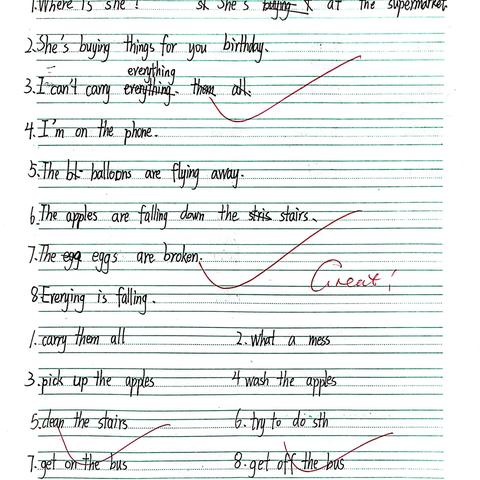 1.Where is she? She's buying at the supermarket.
2.She's buying things for you birthday.
everything
3.I can't carry everything them all.
4.I'm on the phone.
5.The bl balloons are flying away.
6.The apples are falling down the stris stairs.
7.The egg eggs are broken.
Great!
8.Everying is falling.
1.carry them all 2.what a mess
3.pick up the apples 4 wash the apples
5.clean the stairs 6.try to do sth
7.get on the bus 8.get off the bus